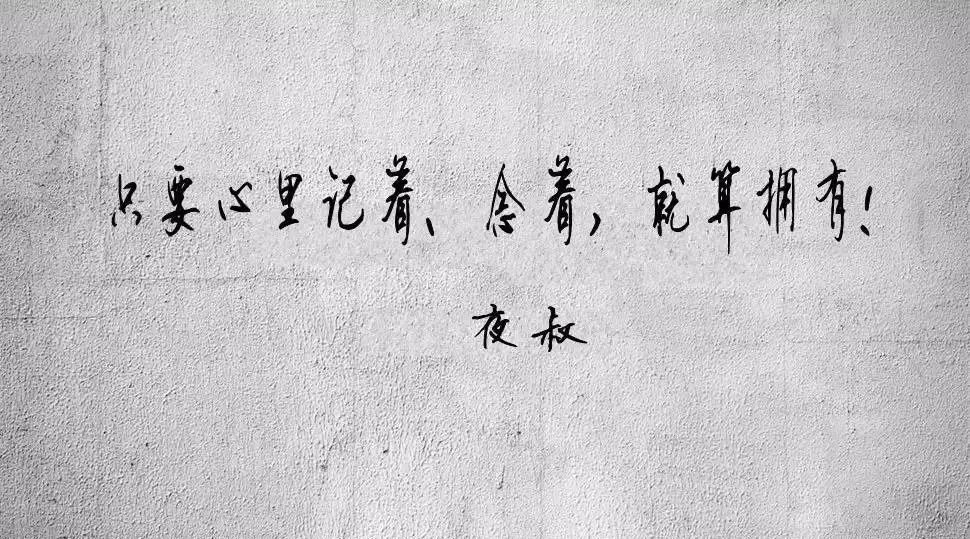 只要心里记着、念着，就算拥有！
夜叔